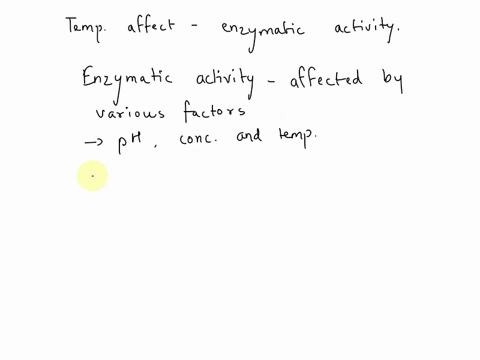 Temp. affect - enzymatic activity.
Enzymatic activity - affected by
various factors
→ pH, conc. and temp.